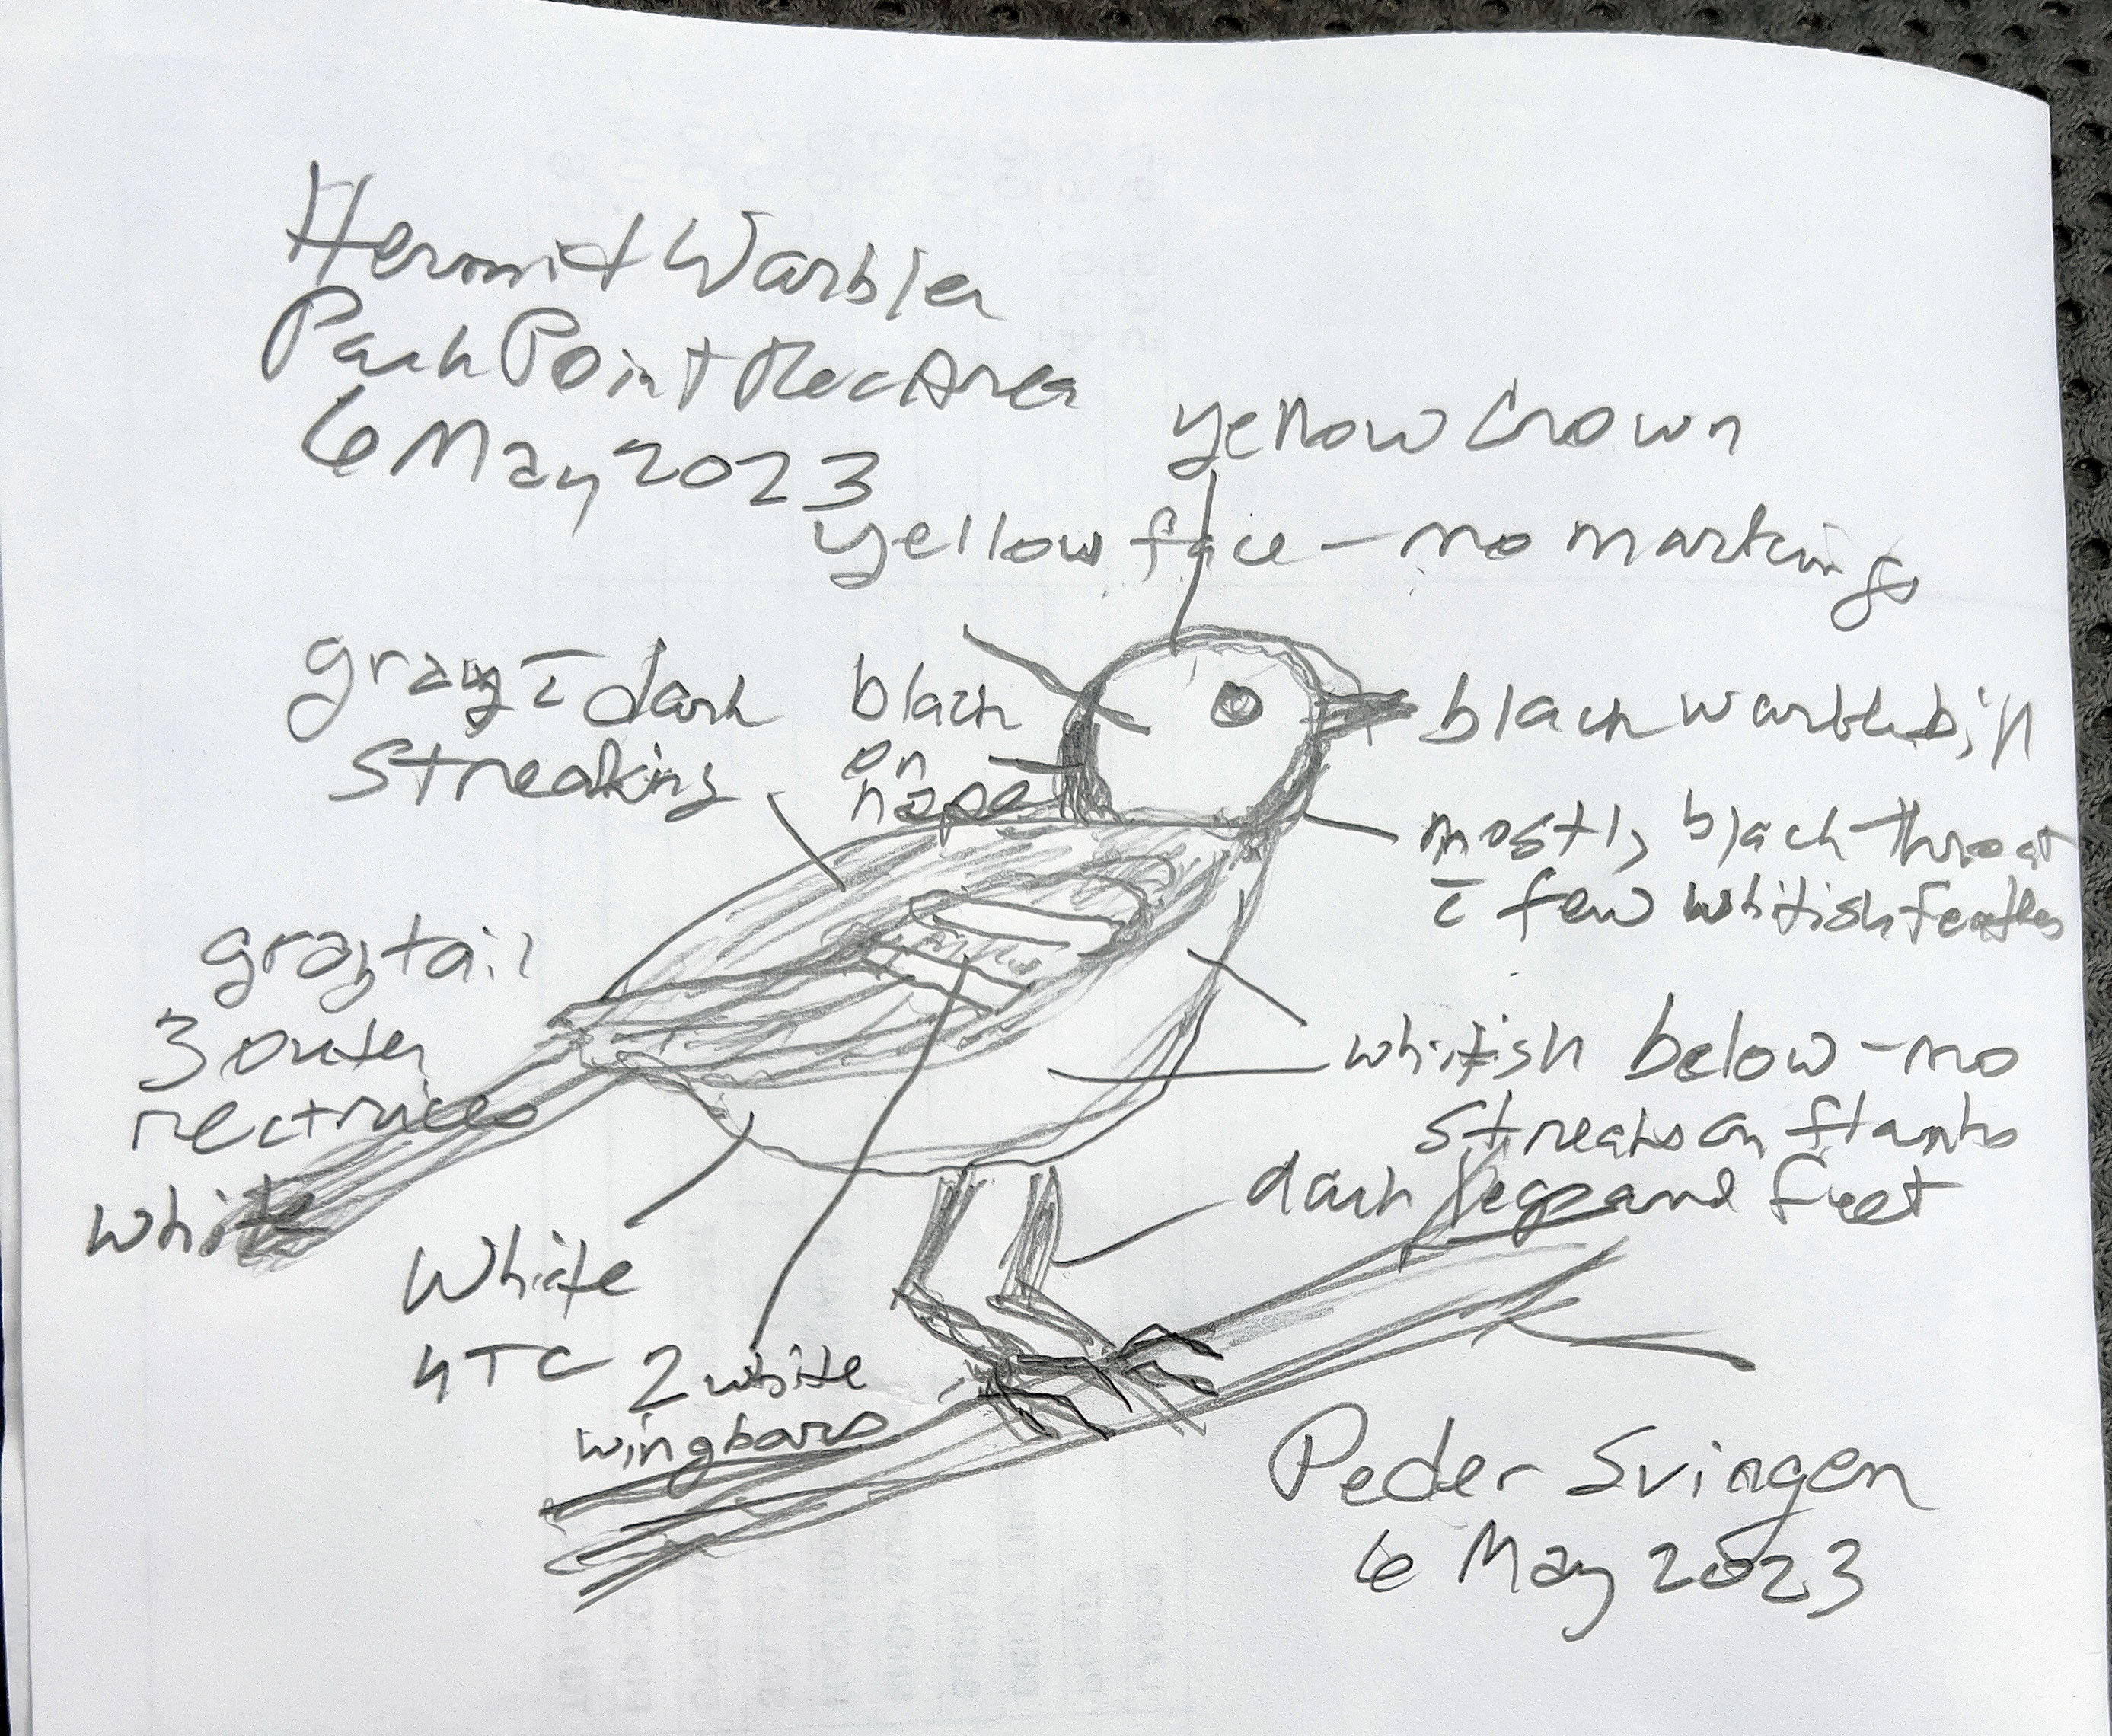 Hermit Warbler
Park Point Rec Area
6 May 2023
yellow Crown
yellow face - no markings
gray c̄ dark
streaking
black
on
nape
black warbler bill
mostly black throat
c̄ few whitish feathers
gray tail
3 outer
rectrices
white
whitish below - no
streaks on flanks
dark legs and feet
White
UTC
2 white
wingbars
Peder Svingen
6 May 2023